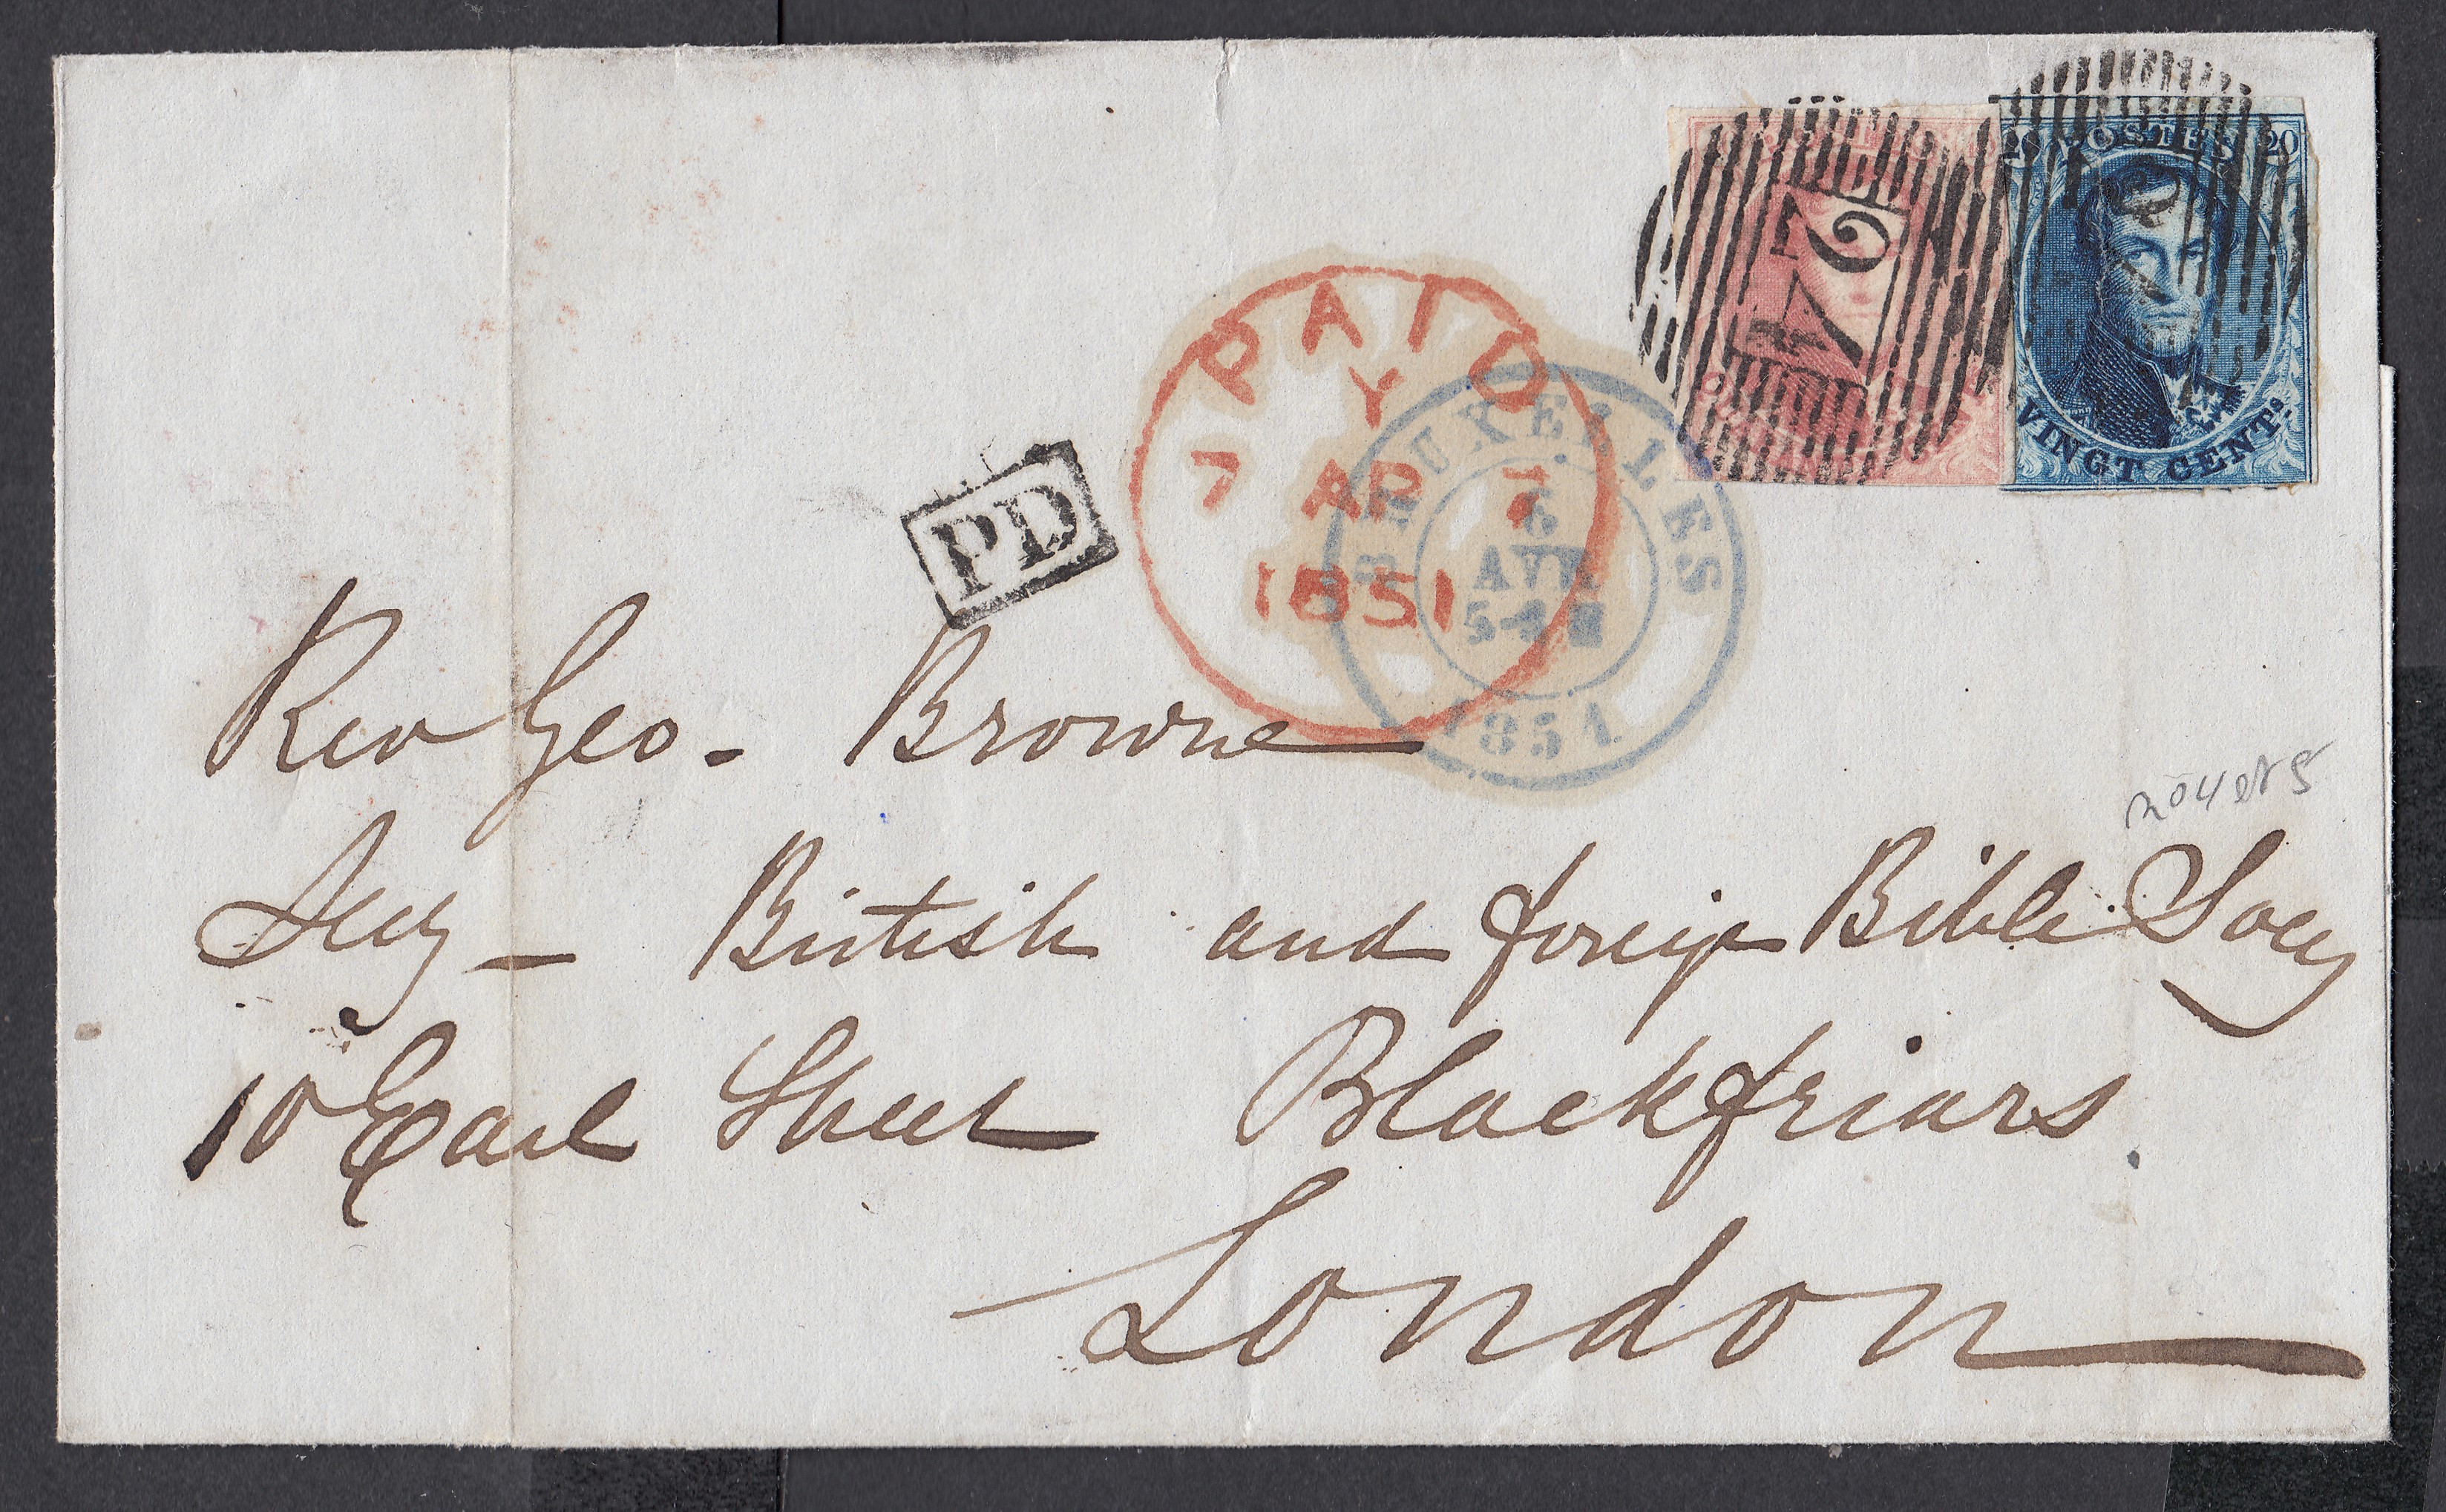 POSTES
20 20
VINGT CENTS.
24
PAID
Y
7 AP 7
1851
BRUXELLES
6
AVR
1851
PD
Rev Geo. Browne
Secy - British and foreign Bible Socy
10 Earl Street Blackfriars
London